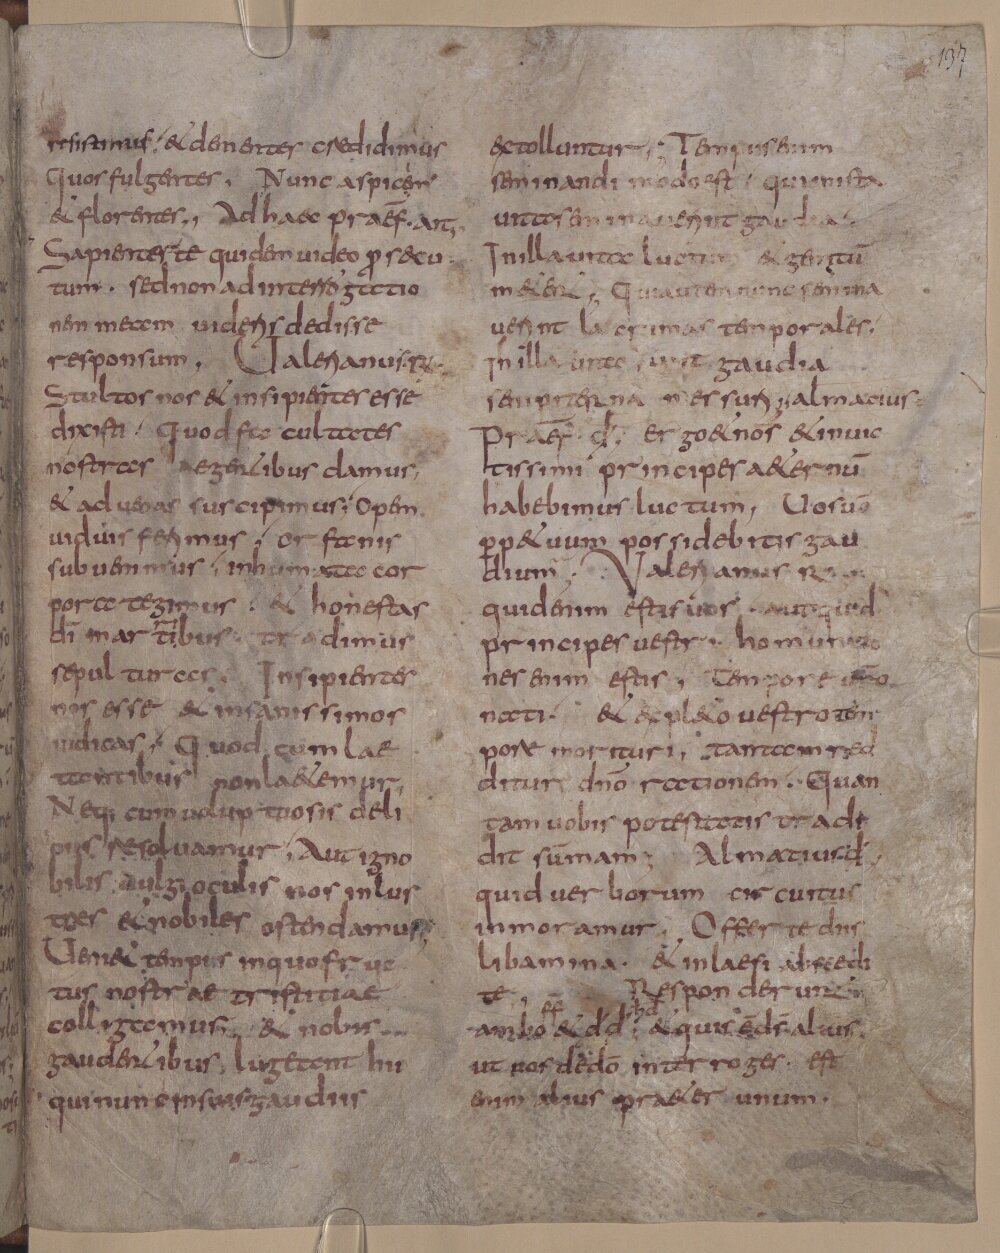 137
resistimus; & denentes credidimus
quos fulgentes. Nunc aspicen
& florentes., Ad haec praef. ait.,
Sapientes te quidem video psecu
tum. sed non ad interrogatio
nem meam videris dedisse
responsum, Ualerianus. R.
Stultos nos & insipientes esse
dixisti. Quod facultates
nostras aegentibus damus,
& advenas suscipimus; Opem
viduis ferimus; orfanis
subvenimus; inhumata cor
pora tegimus. & honestas
di martiribus tradimus
sepulturas. Insipientes
nos esse & insanissimos
iudicas; Quod cum lae
tantibus non laetemur,
Neq; cum voluptuosis deli
ciis resolvamur, Aut igno
bilis vulgi oculis nos inlus
tres & nobiles ostendamus;
Ueniet tempus in quo fruc
tus nostrae tristitiae
colligamus, & nobis
gaudentibus, lugeant hii
qui nunc in suis gaudiis
extolluntur,; Tempus enim
seminandi modo est. qui in ista
vita seminaverint gaudia.
In illa vita luctum & gemitū
metent; Qui autem nunc semina
verint lacrimas temporales,
In illa vita sunt gaudia
sempiterna messuri, almacius
Praef. d. ergo & nos & invic
tissimi principes aeternū
habebimus luctum, Uos vō
pp&uum possidebitis gau
dium; Valerianus R
quid enim estis vos. aut quid
principes vestri. homun
nes enim estis, tempore v̄ro
nati. & expleto vestro tem
pore morituri, tantam red
dituri dno rationem. Quan
tam vobis potestatis tradi
dit summam; Almatius d,
quid verborum circuitus
inmoramur, Offerte diis
libamina. & inlaesi abscedi
te, Responderunt
ambo ff & dd hd & quis e ds alius.
ut nos de dō interroges. est
enim alius praeter unum.